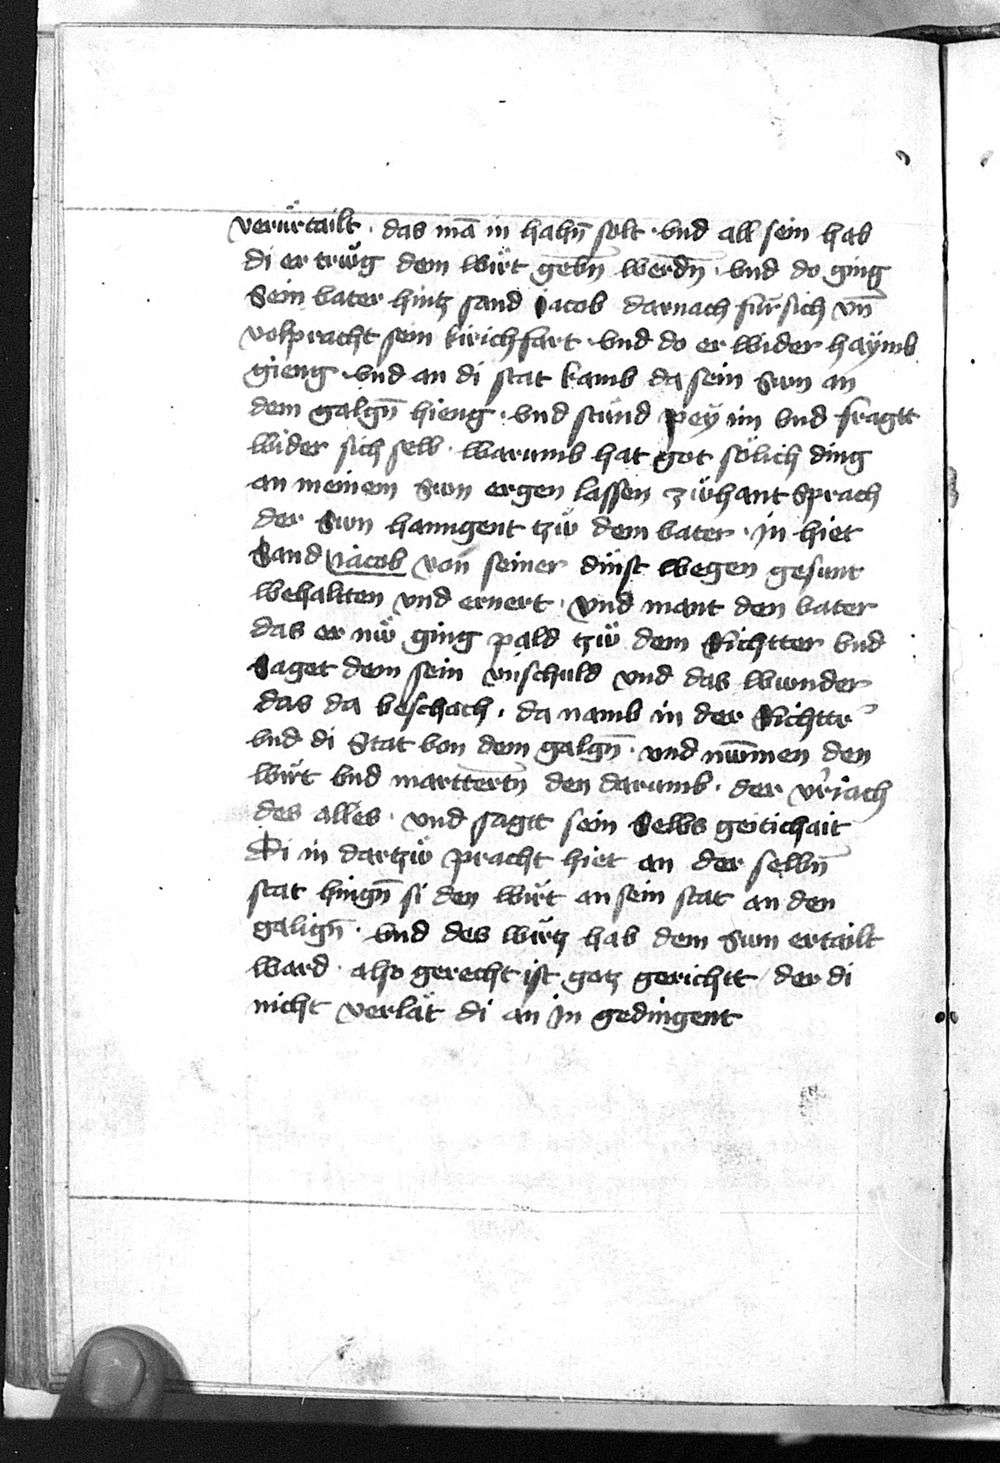 verürtailt · das mā in hahn̄ solt · vnd all sein hab
di er trůg dem wirt gebn̄ werdn̄ · vnd do ging
Sein vater hintz sand Jacob darnach für sich vn̄
volpracht sein kirichfart · vnd do er wider haÿmb
gieng · vnd an di stat kamb da sein Sun an
dem galgn̄ hieng · vnd stuend peÿ im vnd fragtt
wider sich selb · warumb hat got sölich ding
an meinem Sun ergen lassen zẅhant Sprach
der Sun hanngent tzẅ dem vater · in hiet
Sand Jacob von seiner dinst wegen gesunt
wehaltten vnd ernert · vnd mant den vater
das er nẅ ging pald tzẅ dem Richtter vnd
Saget dem sein vnschuld vnd das wunder
das da beschach · da namb in der Richttr̄
vnd di Stat von dem galgn̄ · vnd nw̄men den
wirt vnd marttertn̄ den darumb · der v̓riach
des alles · vnd sagtt sein Selbs geitichait
Di in dartzẅ pracht hiet an der selbn̄
stat hingn̄ si den wirt an sein stat an den
galign̄ · vnd des wirtz hab dem Sun ertailt
ward · also gerecht ist gotz gerichtt / der di
nicht verlät di an in gedingent